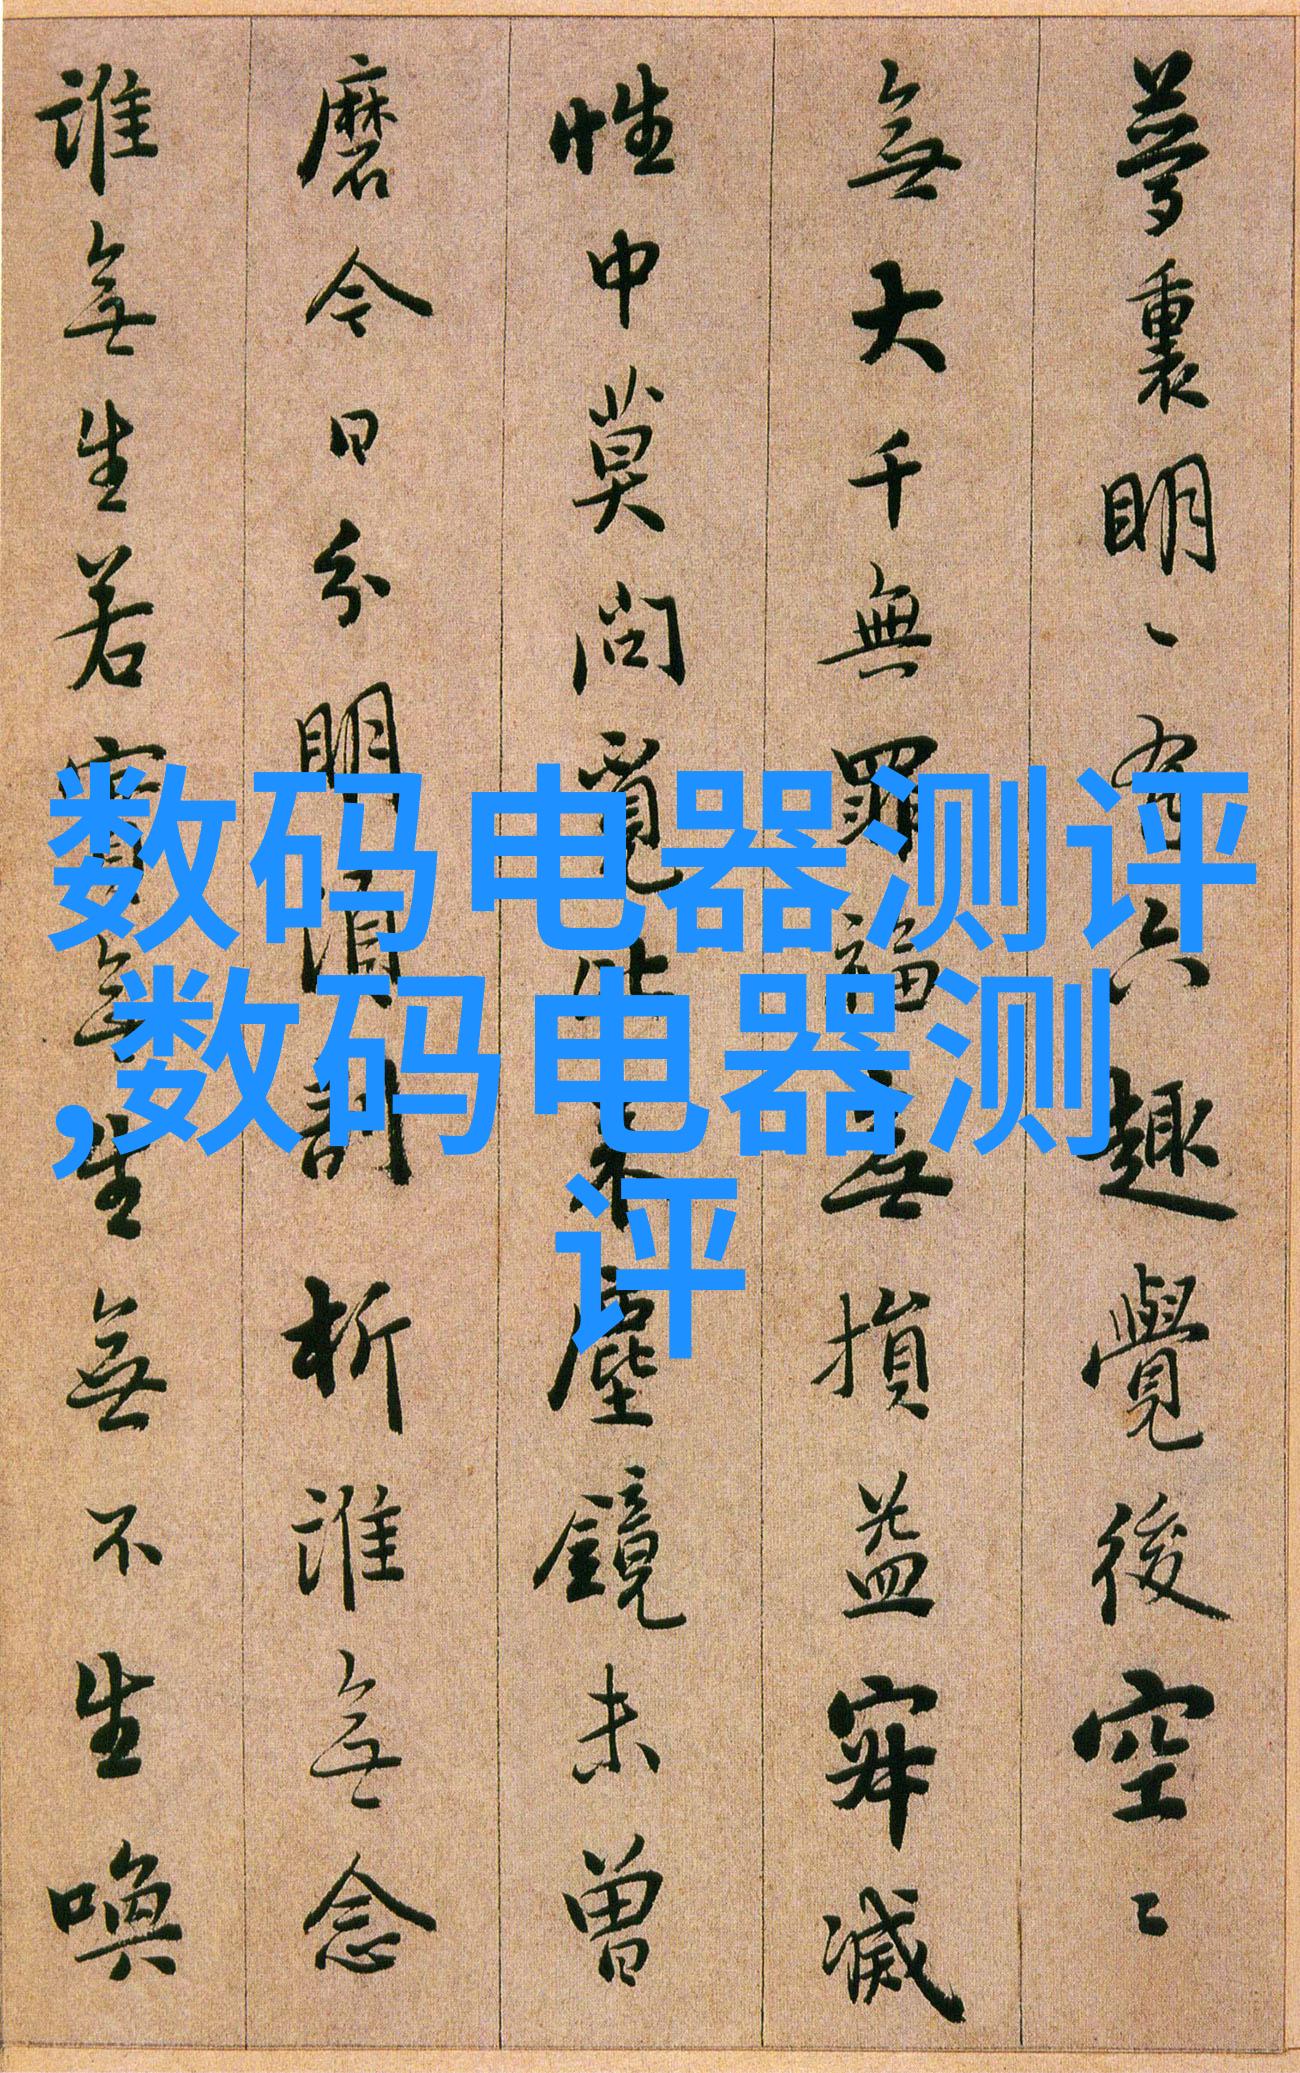 夢裏明〻有六趣覺後空〻
無大千無罪福無損益寂滅
性中莫問覓比来塵鏡未曾
磨今日分明須剖析誰無念
誰無生若實無生無不生喚
数码电器测评
,数码电器测
评